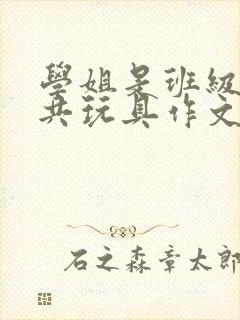 學姐是班級
共玩具作文
石之森章太郎